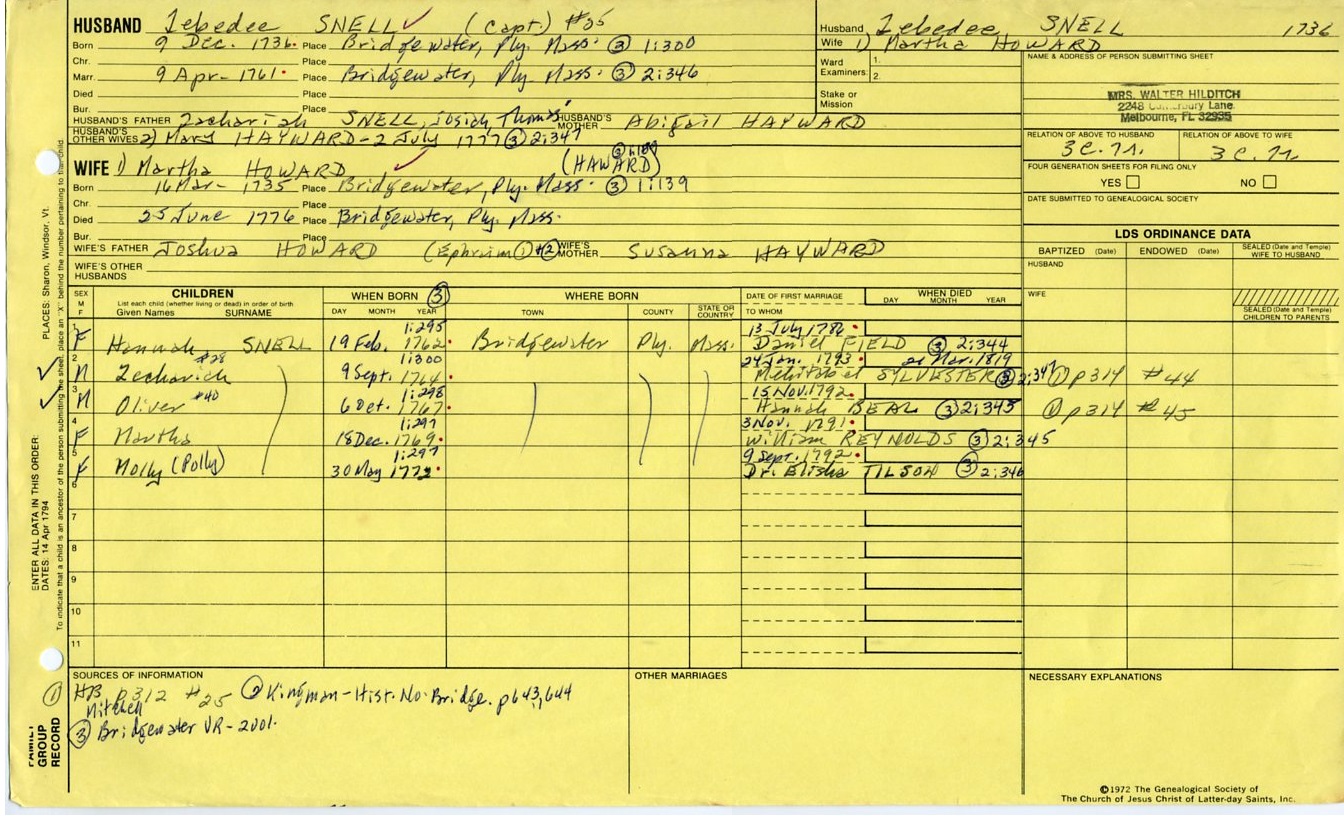 HUSBAND Zebedee SNELL (Capt.) #25
Born 9 Dec. 1736. Place Bridgewater, Ply. Mass. ③ 1:300
Chr. Place
Marr. 9 Apr- 1761. Place Bridgewater, Ply. Mass. ③ 2:346
Died Place
Bur. Place
HUSBAND'S FATHER Zachariah SNELL, Josiah, Thomas HUSBAND'S MOTHER Abigail HAYWARD
HUSBAND'S OTHER WIVES 2) Mary HAYWARD - 2 July 1777 ③ 2:347
WIFE 1) Martha HOWARD (HAWARD)
Born 16 Mar- 1735 Place Bridgewater, Ply. Mass. ③ 1:139
Chr. Place
Died 25 June 1776 Place Bridgewater, Ply. Mass.
Bur. Place
WIFE'S FATHER Joshua HOWARD (Ephraim ① + ② WIFE'S MOTHER Susanna HAYWARD
WIFE'S OTHER HUSBANDS
Husband Zebedee SNELL 1736
Wife 1) Martha HOWARD
Ward Examiners: 1.
2.
Stake or Mission
NAME & ADDRESS OF PERSON SUBMITTING SHEET
MRS. WALTER HILDITCH
2248 Lane
Melbourne, FL 32935
RELATION OF ABOVE TO HUSBAND RELATION OF ABOVE TO WIFE
3 C. 7r. 3 C. 7r
FOUR GENERATION SHEETS FOR FILING ONLY
YES NO
DATE SUBMITTED TO GENEALOGICAL SOCIETY
LDS ORDINANCE DATA
BAPTIZED (Date) ENDOWED (Date) SEALED (Date and Temple) WIFE TO HUSBAND
HUSBAND
WIFE
SEALED (Date and Temple) CHILDREN TO PARENTS
SEX M F
CHILDREN
List each child (whether living or dead) in order of birth
Given Names SURNAME
WHEN BORN ③
DAY MONTH YEAR
WHERE BORN
TOWN COUNTY STATE OR COUNTRY
DATE OF FIRST MARRIAGE
TO WHOM
WHEN DIED
DAY MONTH YEAR
1 1:295 13 July 1786.
F Hannah SNELL 19 Feb. 1762. Bridgewater Ply. Mass. Daniel FIELD ③ 2:344
2 #28 1:300 24 Jan. 1793. 21 Mar. 1819
M Zechariah 9 Sept. 1764. Mehitabel SYLVESTER ③ 2:347 ① p314 #44
3 1:298 15 Nov. 1792.
M Oliver #40 6 Oct. 1767. Hannah BEAL ③ 2:345 ① p314 #45
4 1:297 3 Nov. 1791.
F Martha 18 Dec. 1769. William REYNOLDS ③ 2:345
5 1:297 9 Sept. 1792.
F Molly (Polly) 30 May 1772. Dr. Elisha TILSON ③ 2:346
6
7
8
9
10
11
SOURCES OF INFORMATION
① HB p312 #25 ② Kingman-Hist. No. Bridge. p643,644
Mitchell
③ Bridgewater VR-2vol.
OTHER MARRIAGES
NECESSARY EXPLANATIONS
©1972 The Genealogical Society of
The Church of Jesus Christ of Latter-day Saints, Inc.
ENTER ALL DATA IN THIS ORDER:
DATES: 14 Apr 1794 PLACES: Sharon, Windsor, Vt.
To indicate that a child is an ancestor of the person submitting the sheet, place an "X" behind the number pertaining to that child.
FAMILY GROUP RECORD